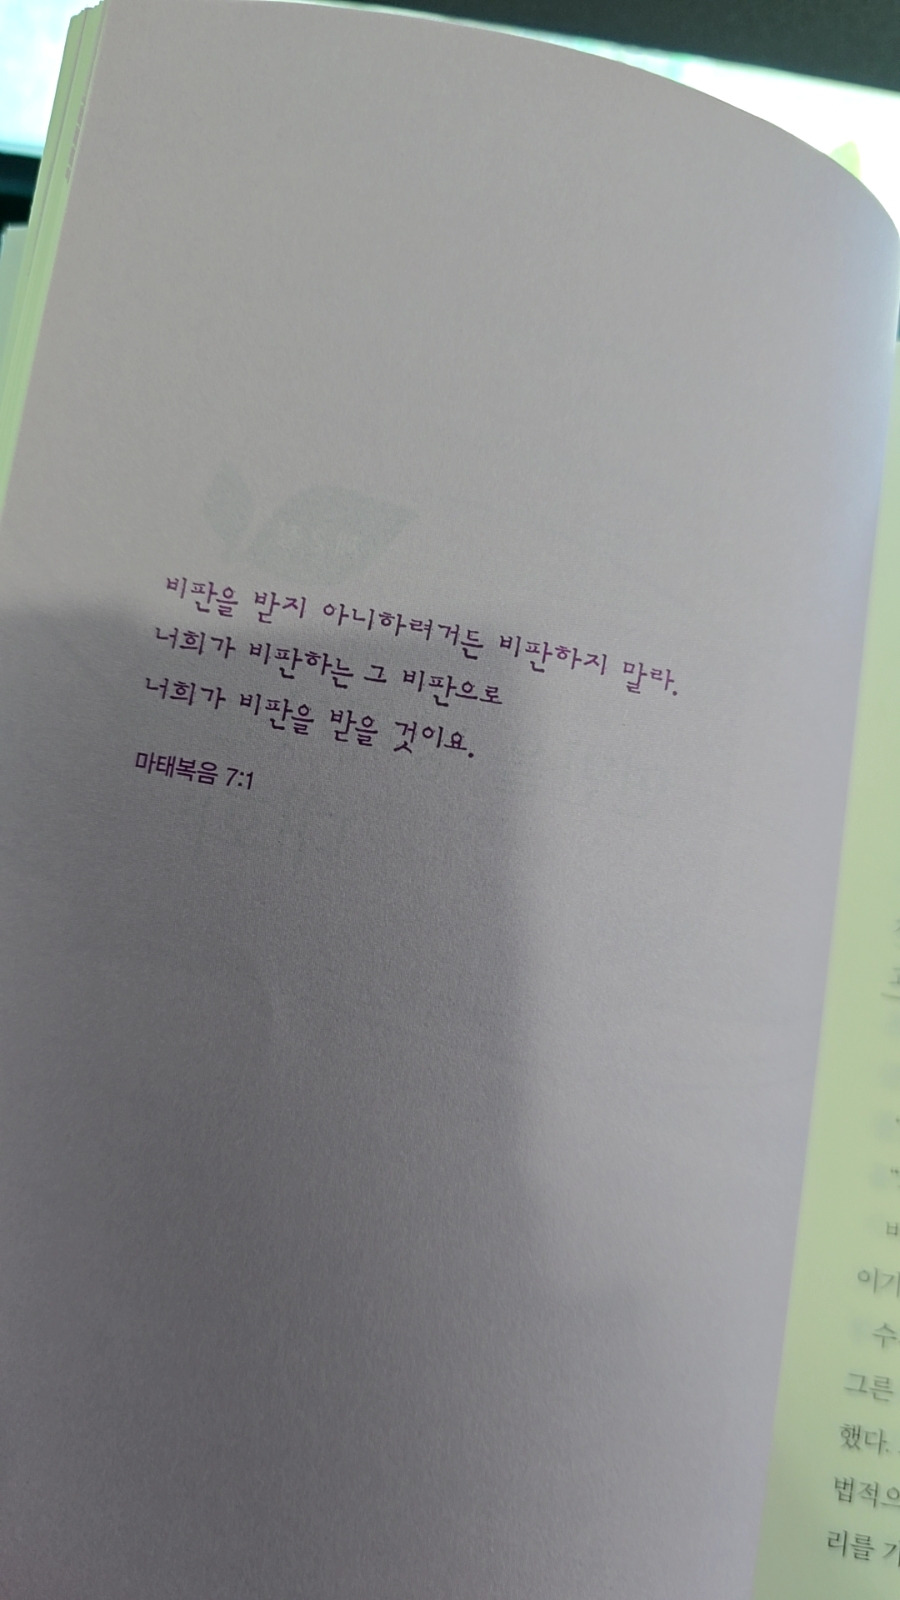 비판을 받지 아니하려거든 비판하지 말라.
너희가 비판하는 그 비판으로
너희가 비판을 받을 것이요.
마태복음 7:1
이기
수
그른
했다.
법적으
리를 기